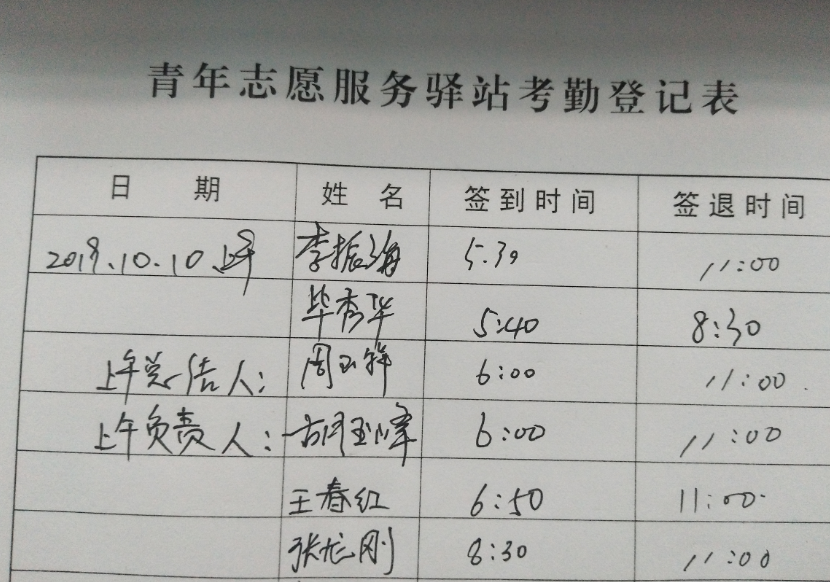 青年志愿服务驿站考勤登记表
日 期 姓 名 签到时间 签退时间
2019.10.10.上午 李振海 5.30 11:00
毕秀华 5:40 8:30
上午总结人: 周玉祥 6:00 11:00
上午负责人: 玉峰 6:00 11:00
王春红 6:50 11:00
张龙刚 8:30 11:00